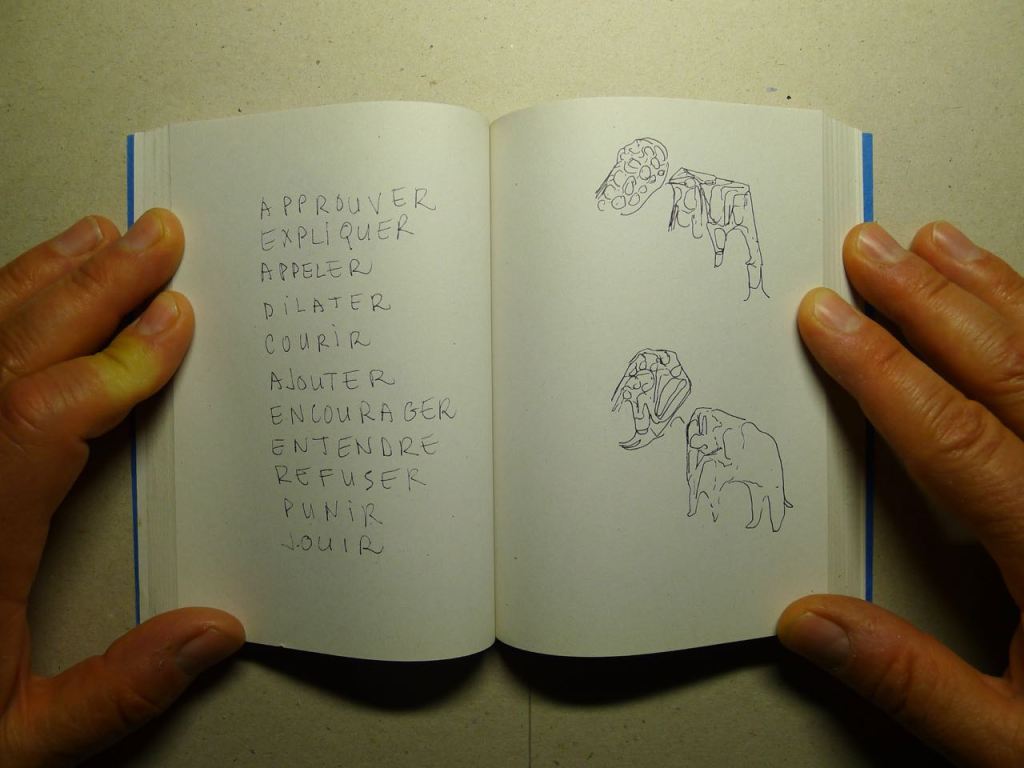 APPROUVER
EXPLIQUER
APPELER
DILATER
COURIR
AJOUTER
ENCOURAGER
ENTENDRE
REFUSER
PUNIR
JOUIR